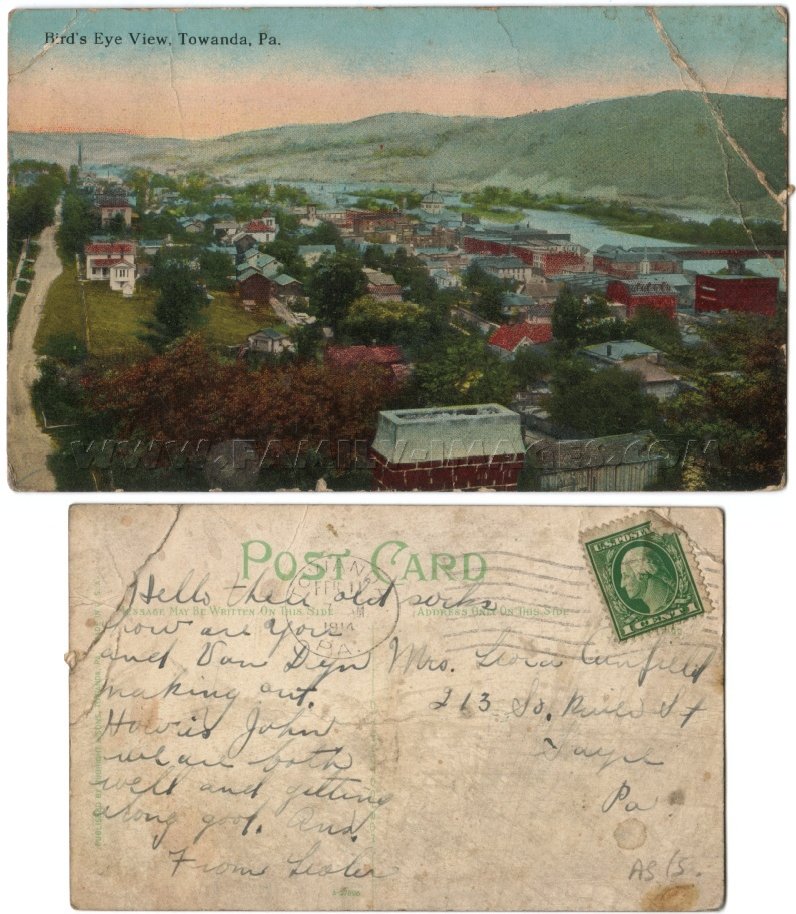 Bird's Eye View, Towanda, Pa.
WWW.FAMILY-IMAGES.COM
POST CARD
TOWANDA
FEB 11
AM
1914
PA.
MESSAGE MAY BE WRITTEN ON THIS SIDE
ADDRESS ONLY ON THIS SIDE
U.S. POSTA
1 CENT 1
Hello there old socks
how are you
and Van Dyn
making out.
How is John
we are both
well and getting
along good. Ans.
From Lester
Mrs. Leora Canfield
213 So. River St
Sayre
Pa
AS 15.